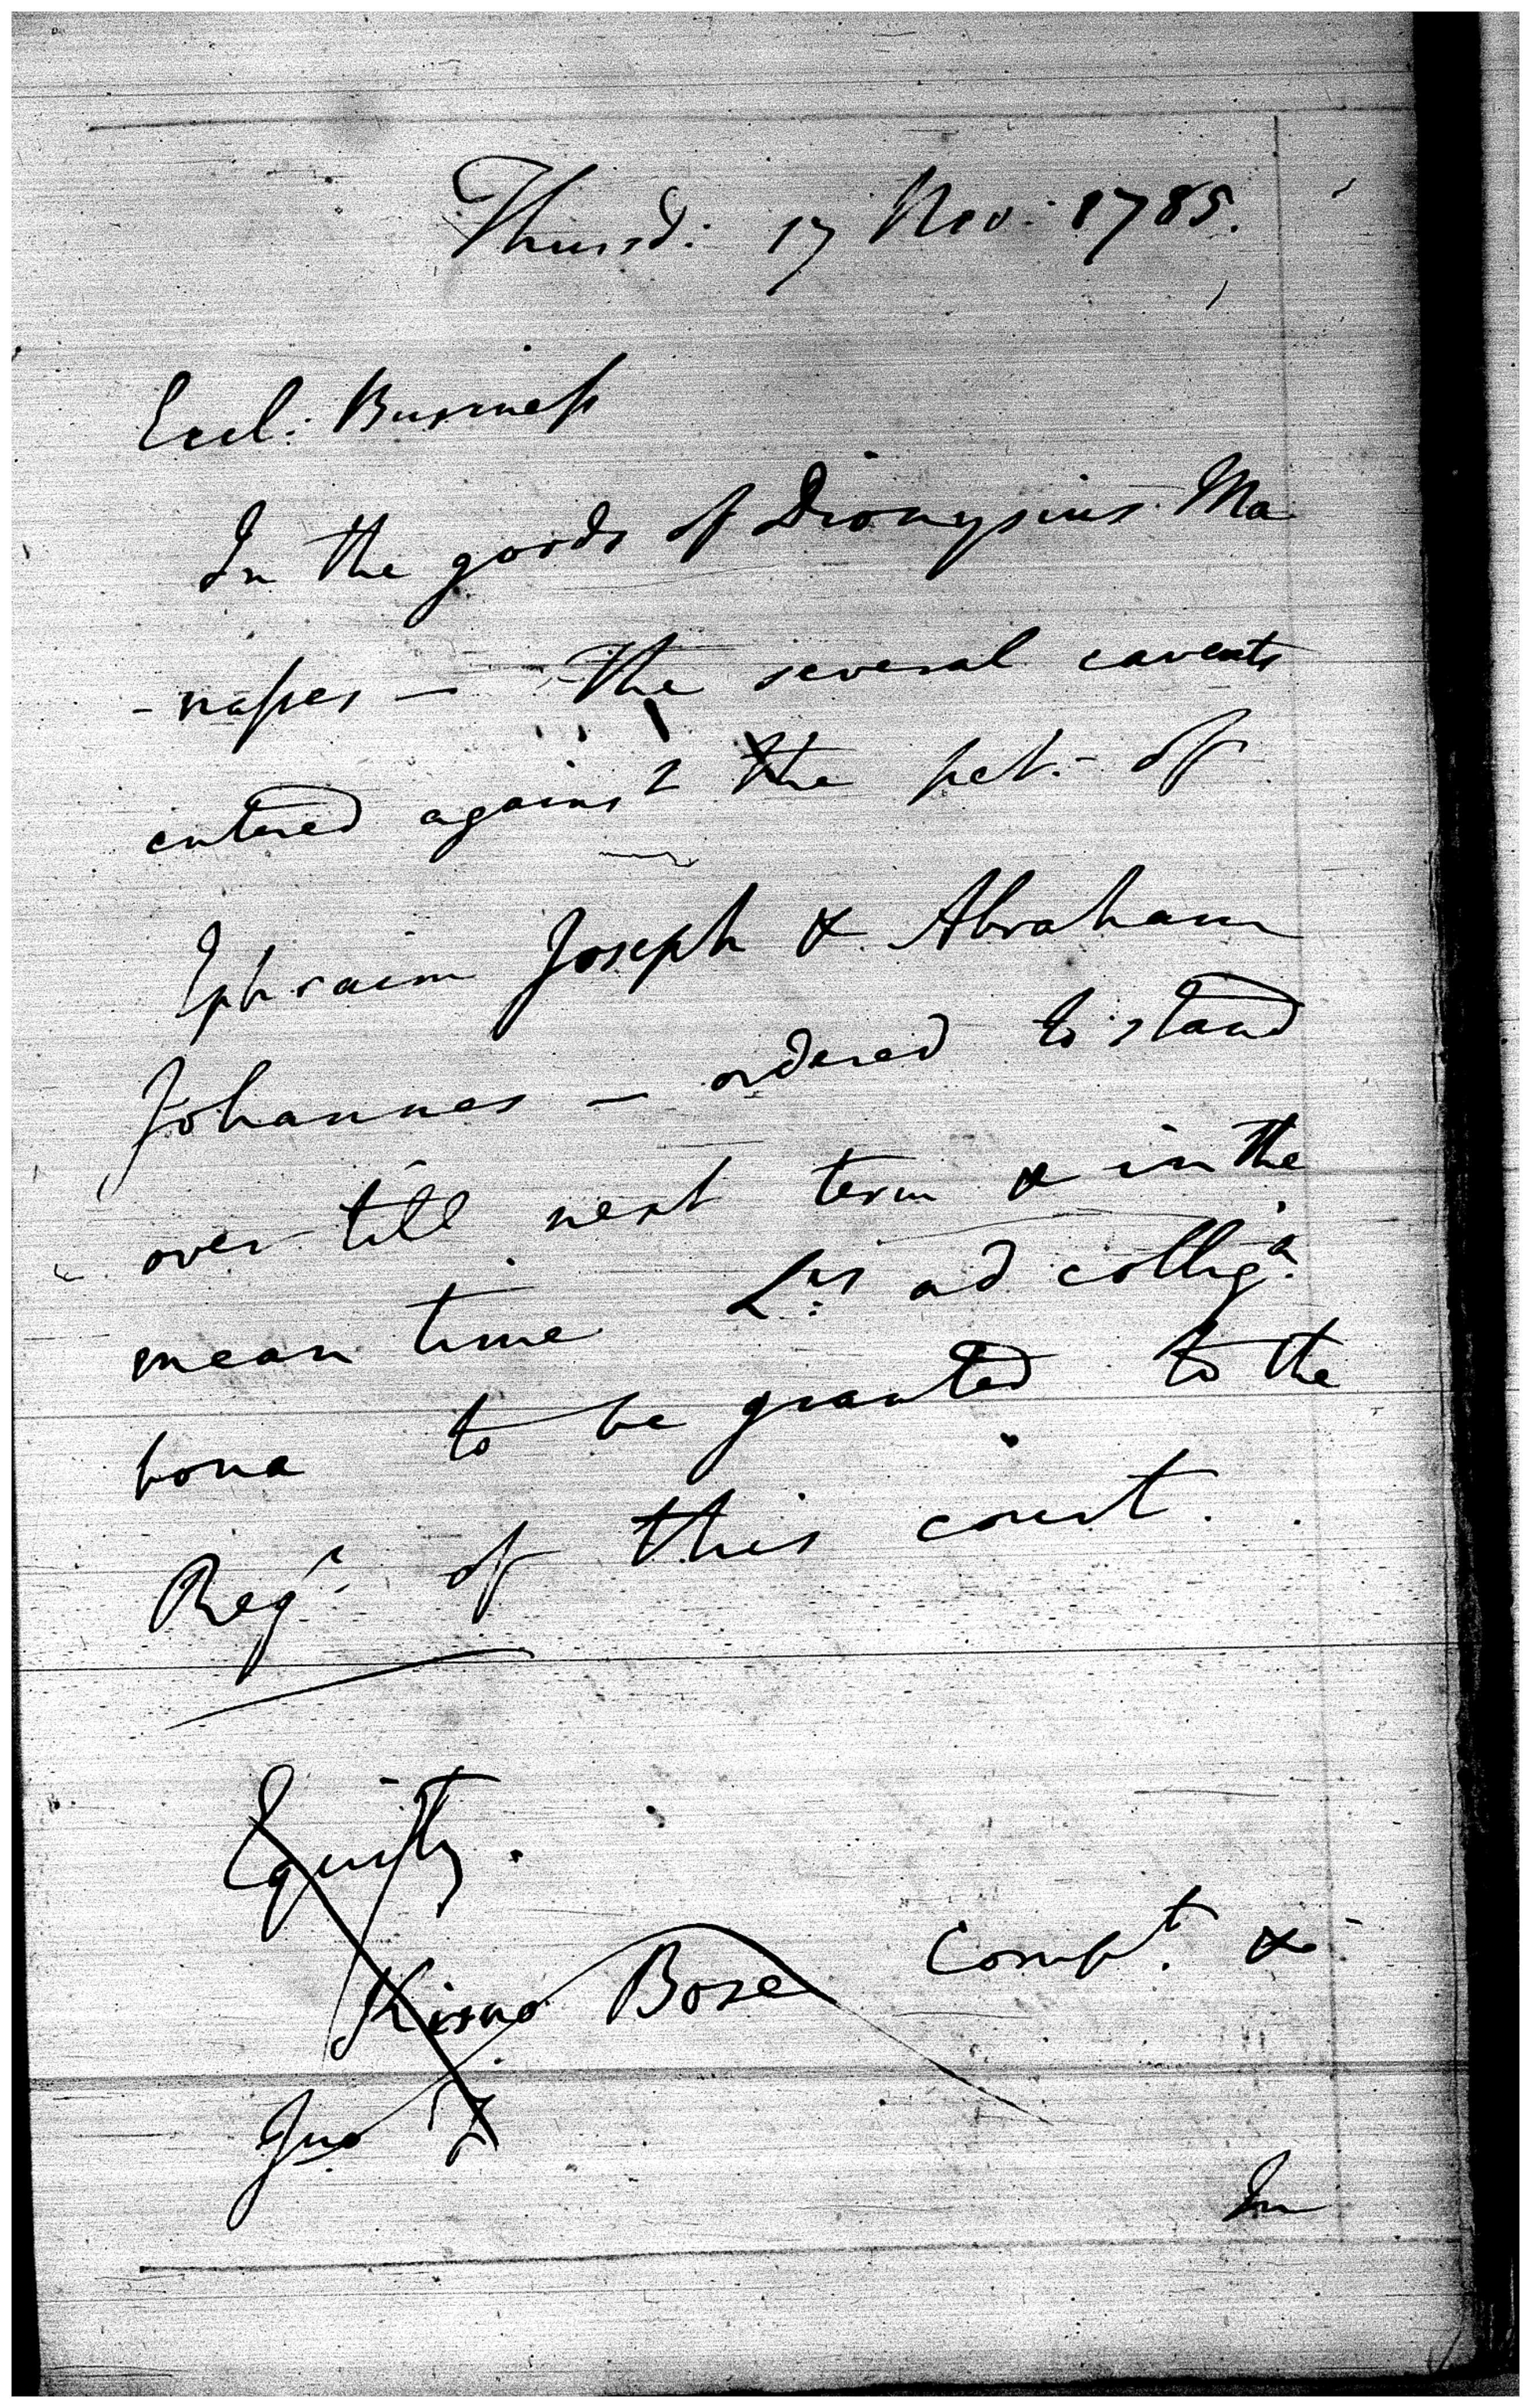 Thursd: 17 Nov: 1785.
Eccl: Business
In the goods of Dionysius Ma
-nasses — The several caveats
entered against the pet:- of
Ephraim Joseph & Abraham
Johannes — ordered to stand
over till next term & in the
mean time Lrs ad colliga
bona to be granted to the
Regr of this court.
Equity.
Kisno Bose Compt. &
Jno
In